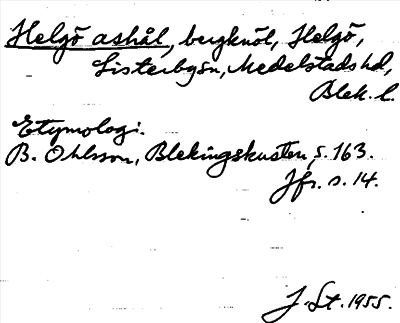 Helgö ashål, bergknöl, Helgö,
Listerbysn, Medelstads hd,
Blek. l.
Etymologi.
B. Ohlsson, Blekingskusten, s. 163.
Jfr. s. 14.
J. St. 1955.